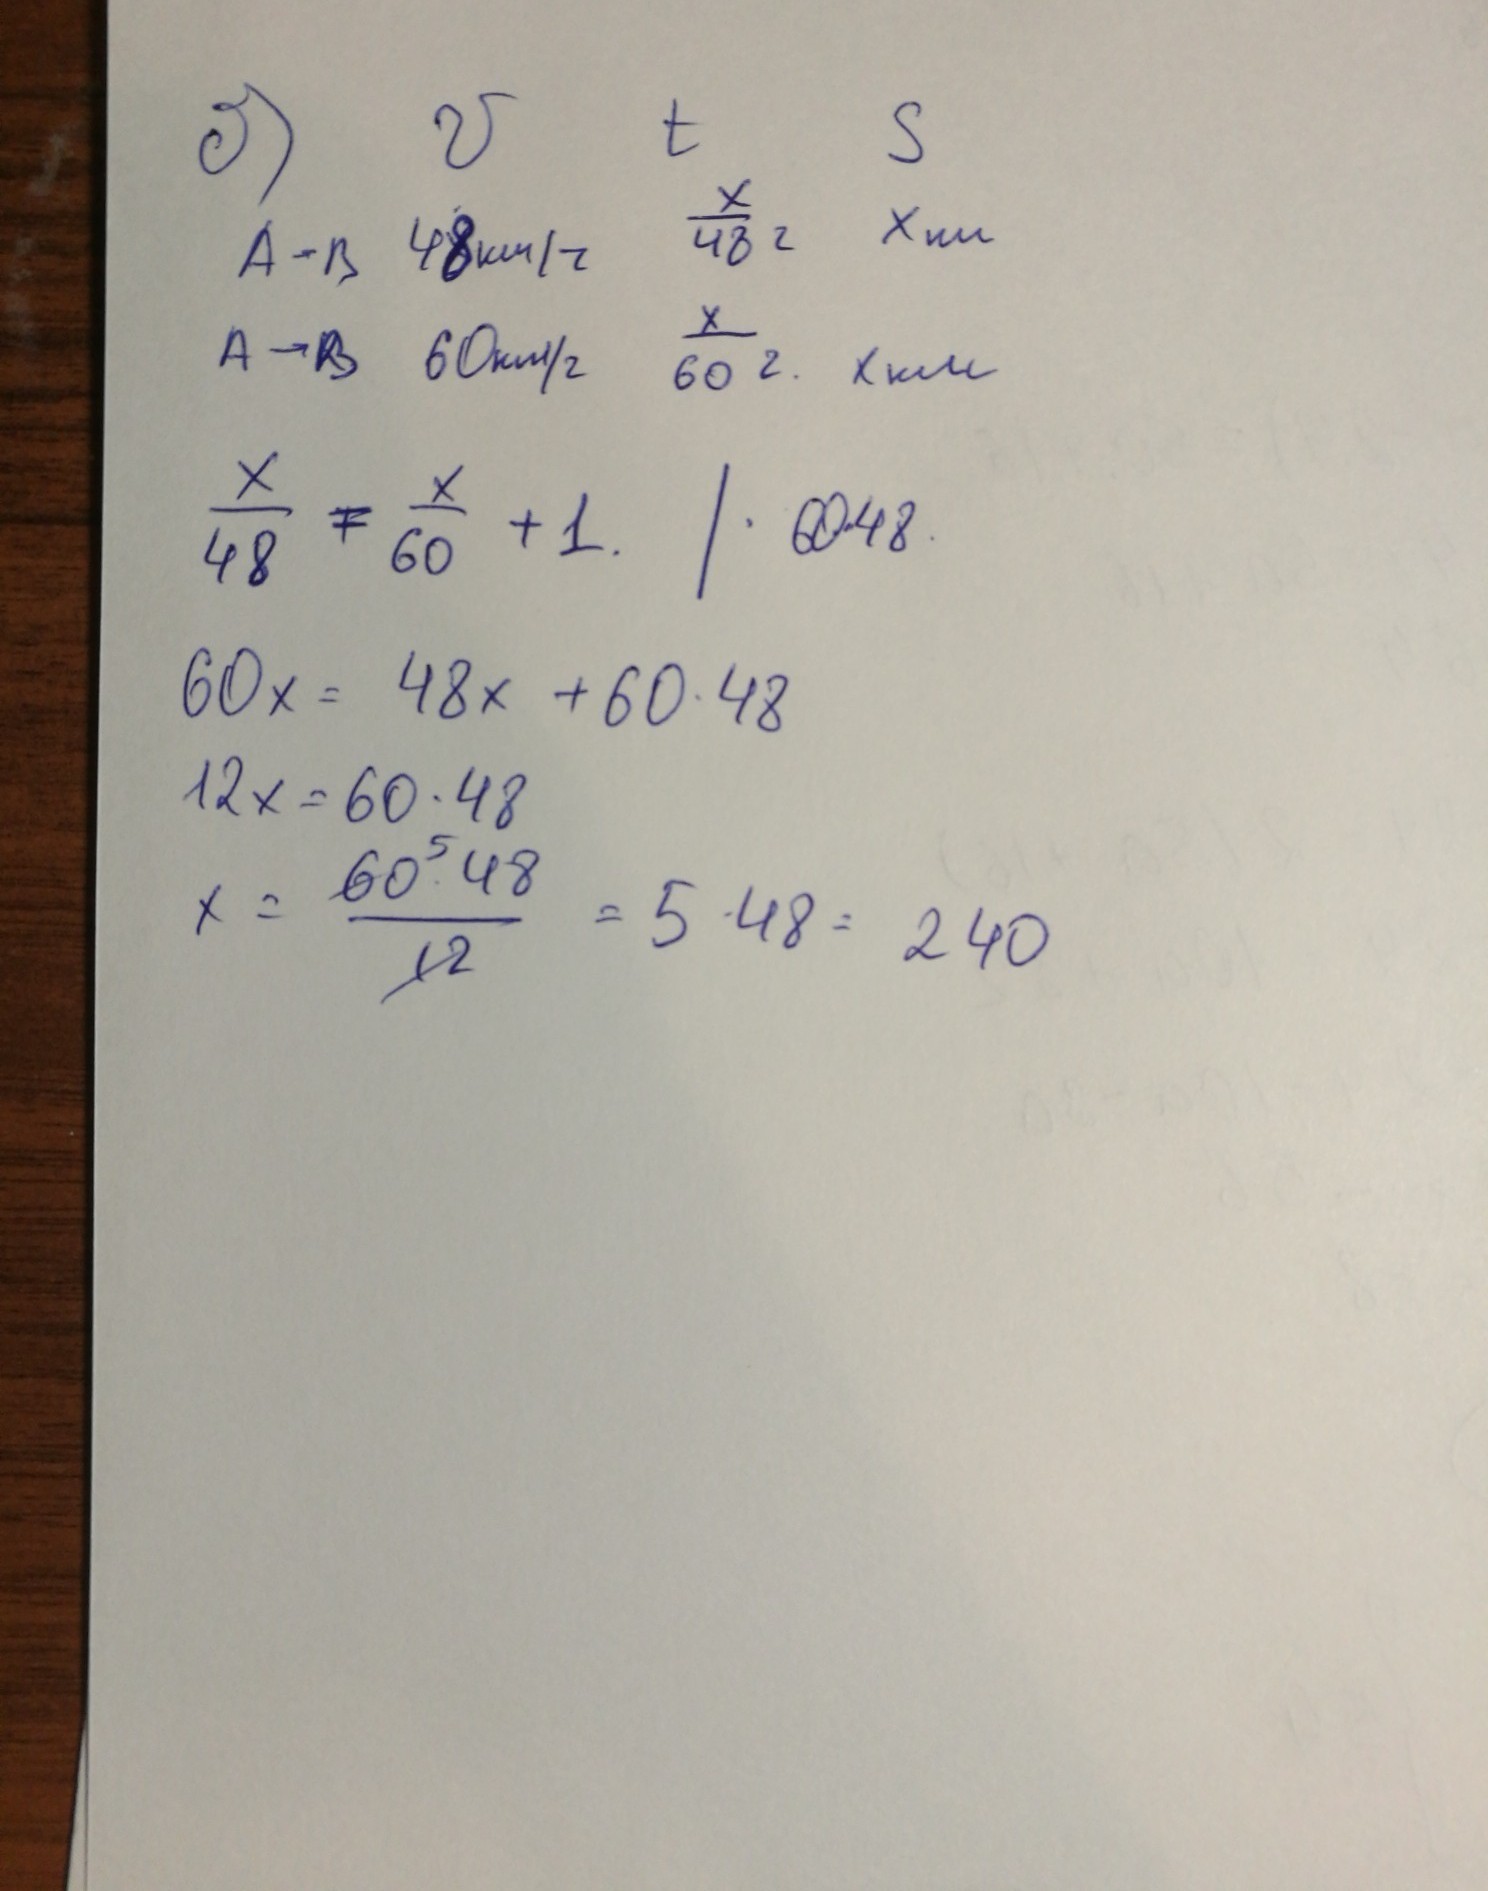 б) V t S
A-B 48км/ч x/48 г xкм
A→B 60км/г x/60 г. xкм
x/48 = x/60 + 1. | · 60·48.
60x = 48x + 60·48
12x = 60·48
x = 60⁵·48/12 = 5·48 = 240